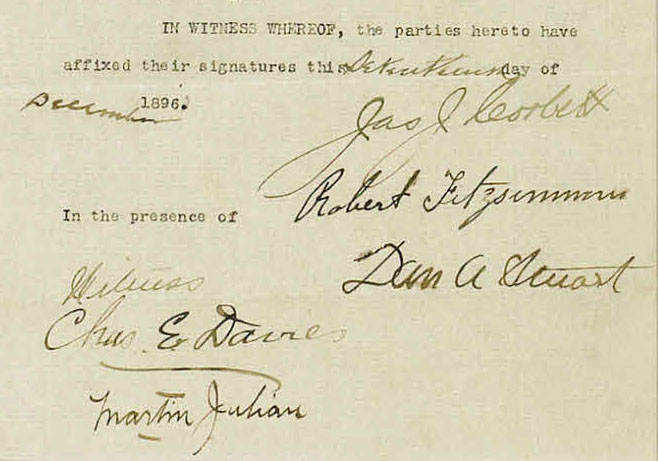 IN WITNESS WHEREOF, the parties hereto have
affixed their signatures this day of
December 1896.
Jas J Corbett
Robert Fitzsimmons
In the presence of
Dan A Stuart
Witness
Chas. E. Davies
Martin Julian